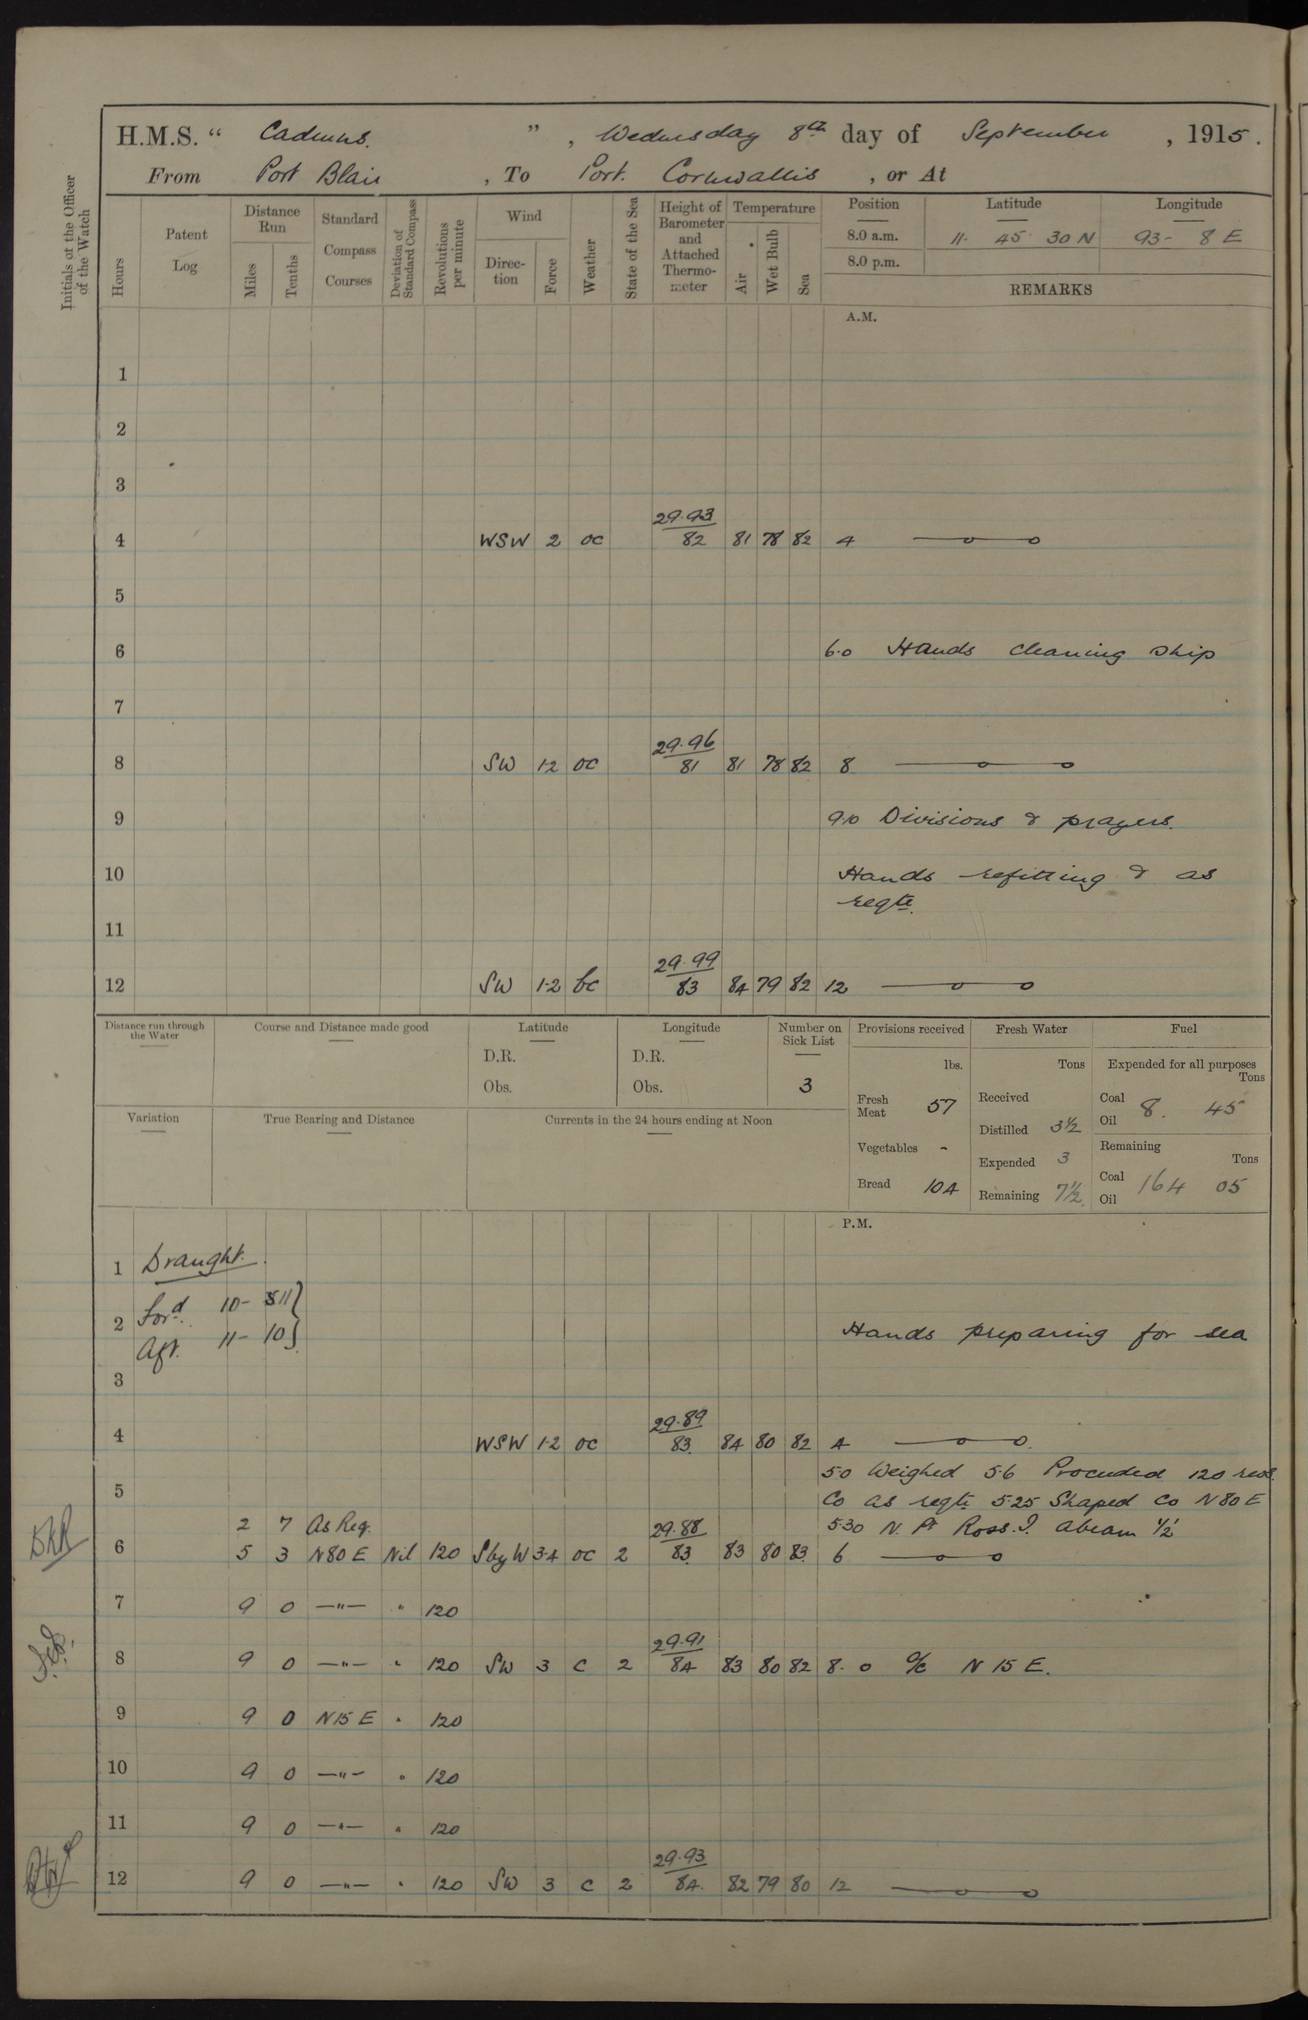 H.M.S. “ Cadmus. ” , Wednesday 8th day of September , 1915.
From Port Blair , To Port. Cornwallis , or At
Initials of the Officer of the Watch
Hours
Patent Log
Distance Run
Miles
Tenths
Standard Compass Courses
Deviation of Standard Compass
Revolutions per minute
Wind
Direction
Force
Weather
State of the Sea
Height of Barometer and Attached Thermometer
Temperature
Air
Wet Bulb
Sea
Position Latitude Longitude
8.0 a.m. 11. 45. 30 N 93- 8 E
8.0 p.m.
REMARKS
A.M.
1
2
3
29.93
4 WSW 2 oc 82 81 78 82 4
5
6 6.0 Hands cleaning ship
7
29.96
8 SW 1.2 oc 81 81 78 82 8
9 9.10 Divisions & prayers.
10 Hands refitting & as
reqte.
11
29.99
12 SW 1.2 bc 83 84 79 82 12
Distance run through the Water
Course and Distance made good
Latitude
D.R.
Obs.
Longitude
D.R.
Obs.
Number on Sick List
3
Provisions received
lbs.
Fresh Meat 57
Vegetables -
Bread 104
Fresh Water
Tons
Received
Distilled 3½
Expended 3
Remaining 7½
Fuel
Expended for all purposes
Tons
Coal
Oil
8. 45
Remaining
Tons
Coal
Oil
164 05
Variation
True Bearing and Distance
Currents in the 24 hours ending at Noon
P.M.
1 Draught.
2 Ford. 10- 11}
Aft. 11- 10}
Hands preparing for sea
3
29.89
4 WSW 1.2 oc 83 84 80 82 4
5.0 Weighed 5.6 Proceeded 120 revs.
5 Co as reqte 5.25 Shaped Co N 80 E
2 7 As Req. 29.88 5.30 N. Pt Ross. I. abeam ½'
6 5 3 N80E Nil 120 SbyW 3.4 oc 2 83 83 80 83 6
7 9 0 —"— " 120
29.91
8 9 0 —"— " 120 SW 3 c 2 84 83 80 82 8.0 a/c N 15 E.
9 9 0 N15E " 120
10 9 0 —"— " 120
11 9 0 —"— " 120
29.93
12 9 0 —"— " 120 SW 3 c 2 84 82 79 80 12